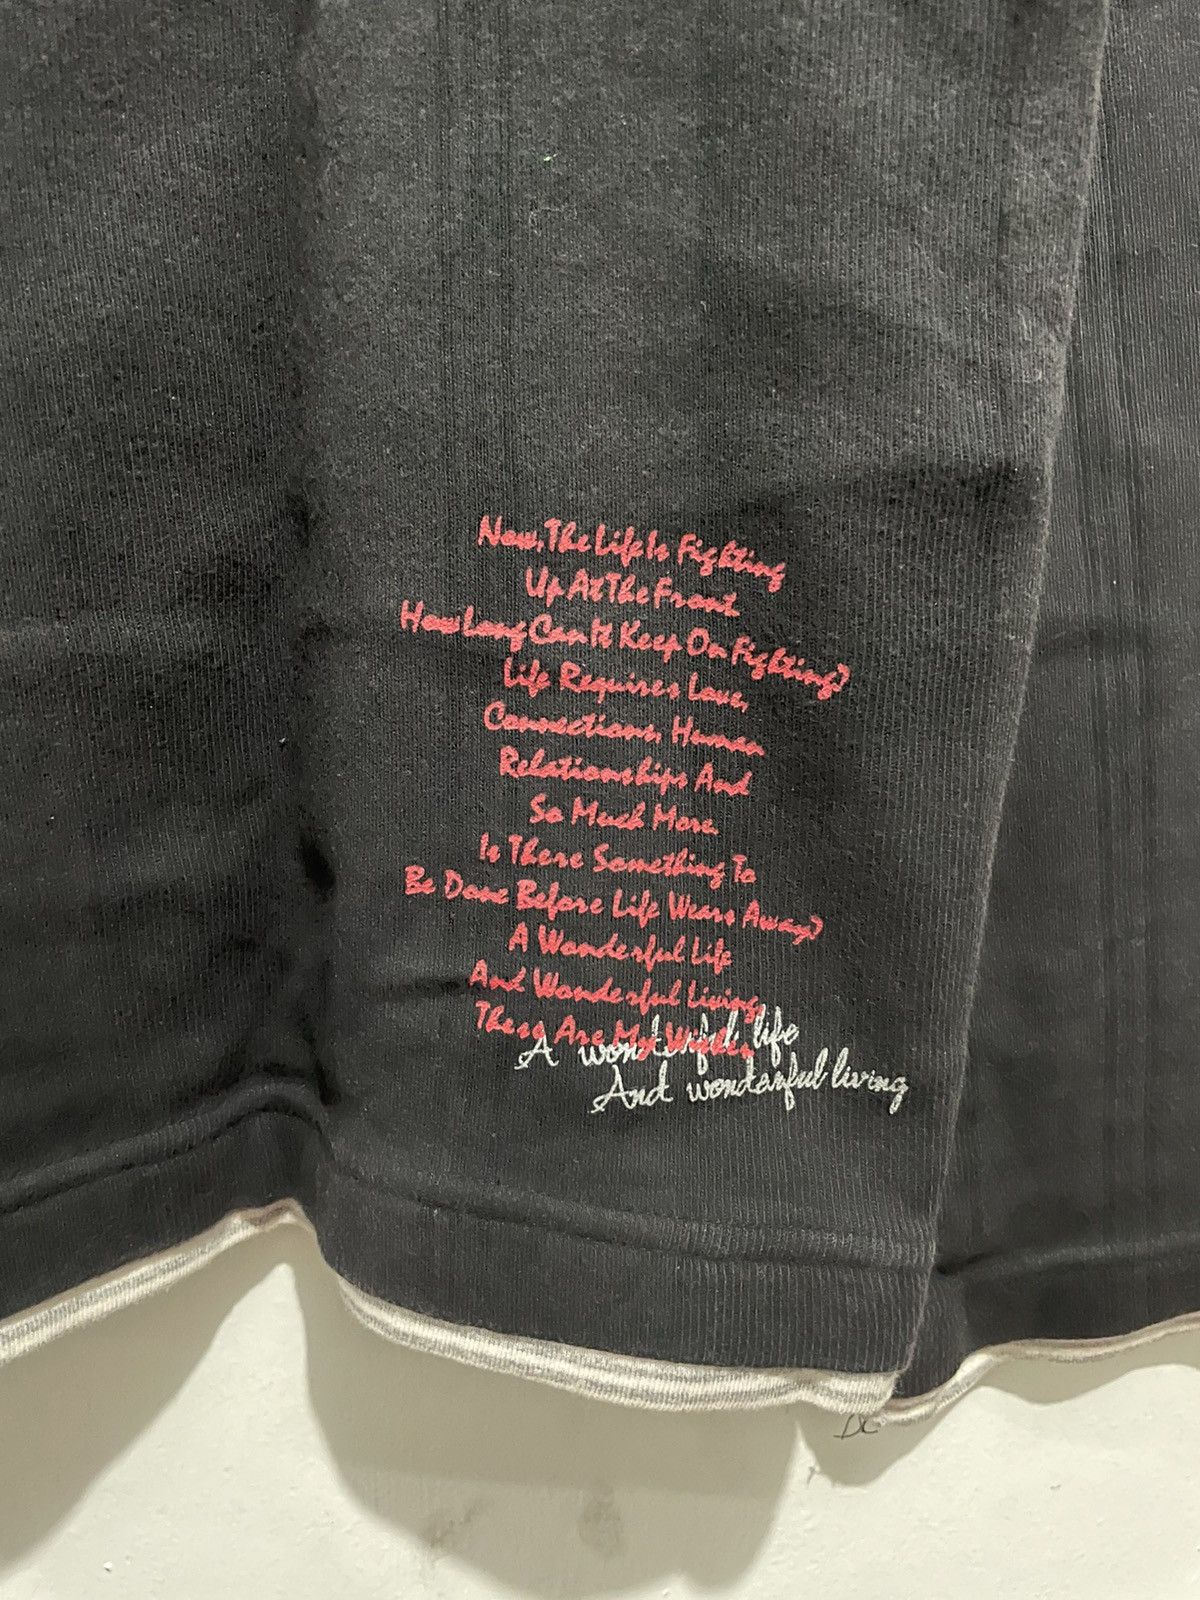 Now, The Life Is Fighting
Up At The Front
How Long Can It Keep On Fighting?
Life Requires Love,
Connections, Human
Relationships And
So Much More.
Is There Something To
Be Done Before Life Wears Away?
A Wonderful Life
And Wonderful Living,
These Are My Wishes
A wonderful life
And wonderful living